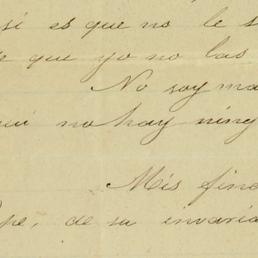 sí es que no le s
que yo no las
No soy ma
uí no hay ning
Mis fine
pe, de su invaria